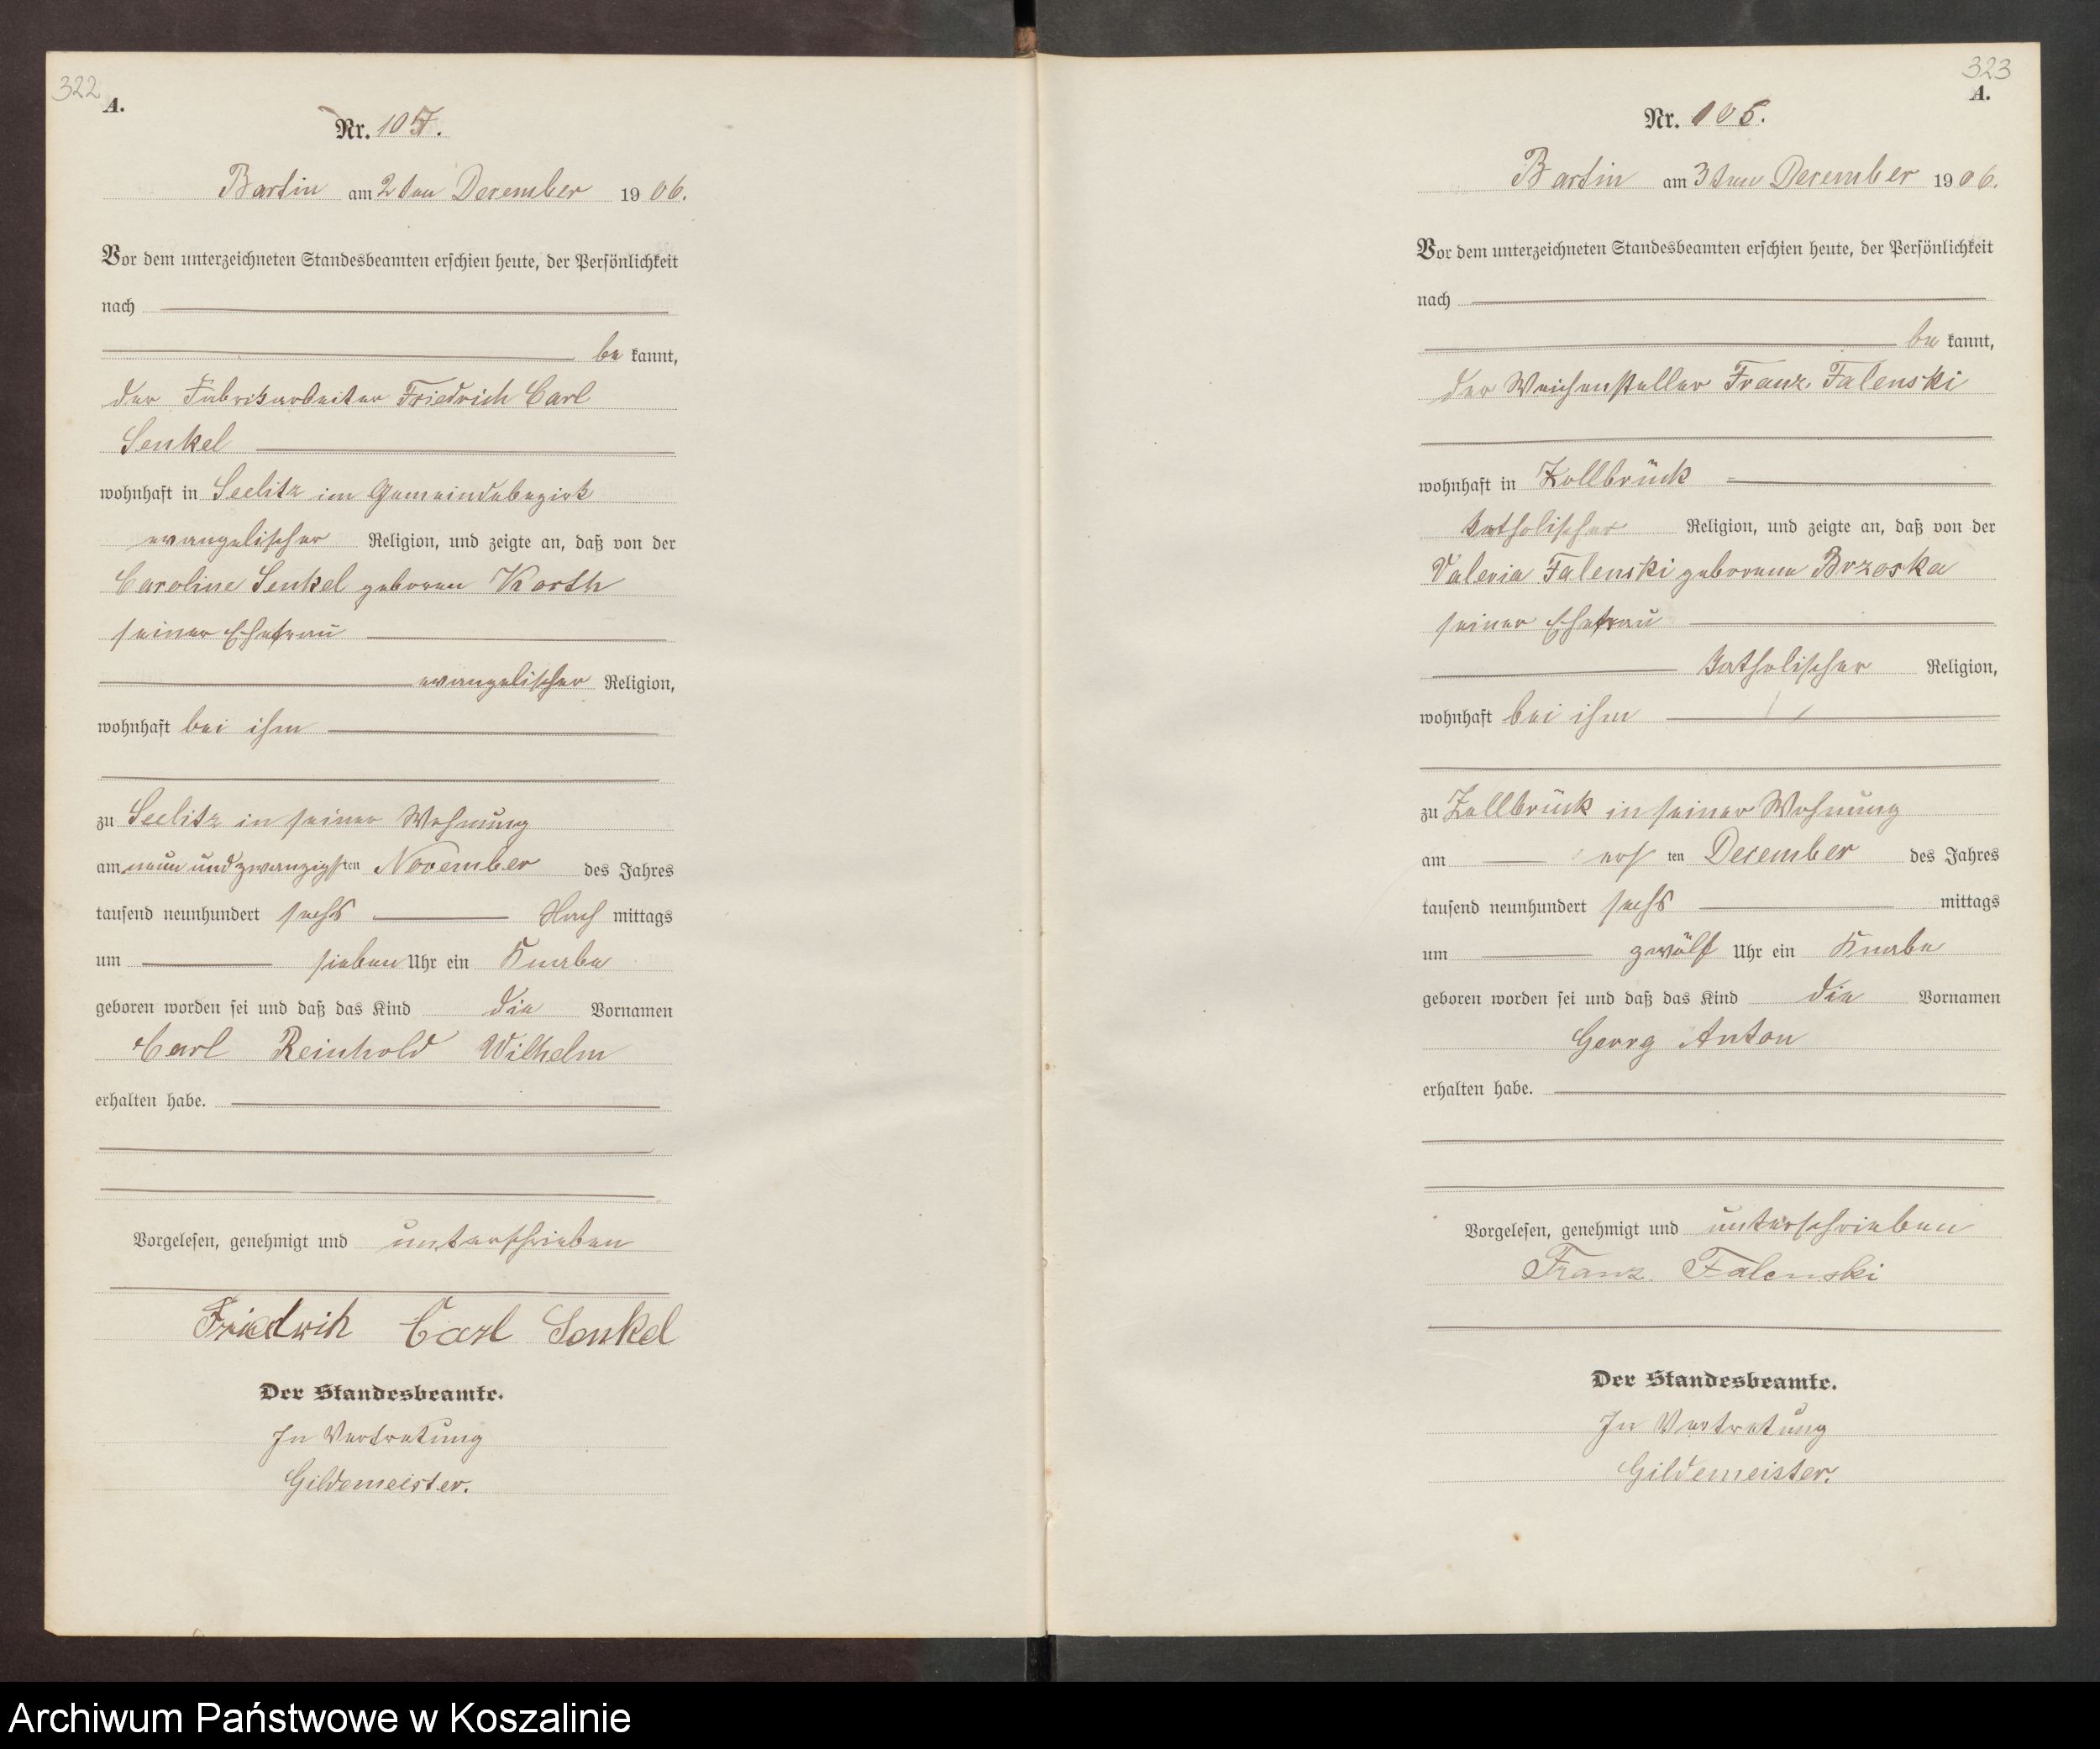 322
A.
Nr. 105.
Bartin am 2ten December 1906.
Vor dem unterzeichneten Standesbeamten erschien heute, der Persönlichkeit
nach
be kannt,
der Fabrikarbeiter Friedrich Carl
Senkel
wohnhaft in Seelitz im Gemeindebezirk
evangelischer Religion, und zeigte an, daß von der
Caroline Senkel geboren Korth
seiner Ehefrau
evangelischer Religion,
wohnhaft bei ihm
zu Seelitz in seiner Wohnung
am neun und zwanzigsten November des Jahres
tausend neunhundert sechs Nach mittags
um sieben Uhr ein Knabe
geboren worden sei und daß das Kind die Vornamen
Carl Reinhold Wilhelm
erhalten habe.
Vorgelesen, genehmigt und unterschrieben
Friedrich Carl Senkel
Der Standesbeamte.
In Vertretung
Gildemeister.
323
A.
Nr. 106.
Bartin am 3ten December 1906.
Vor dem unterzeichneten Standesbeamten erschien heute, der Persönlichkeit
nach
be kannt,
der Weichensteller Franz Falenski
wohnhaft in Zollbrück
katholischer Religion, und zeigte an, daß von der
Valeria Falenski geborene Brzoska
seiner Ehefrau
katholischer Religion,
wohnhaft bei ihm
zu Zollbrück in seiner Wohnung
am ersten December des Jahres
tausend neunhundert sechs mittags
um zwölf Uhr ein Knabe
geboren worden sei und daß das Kind die Vornamen
Georg Anton
erhalten habe.
Vorgelesen, genehmigt und unterschrieben
Franz Falenski
Der Standesbeamte.
In Vertretung
Gildemeister.
Archiwum Państwowe w Koszalinie